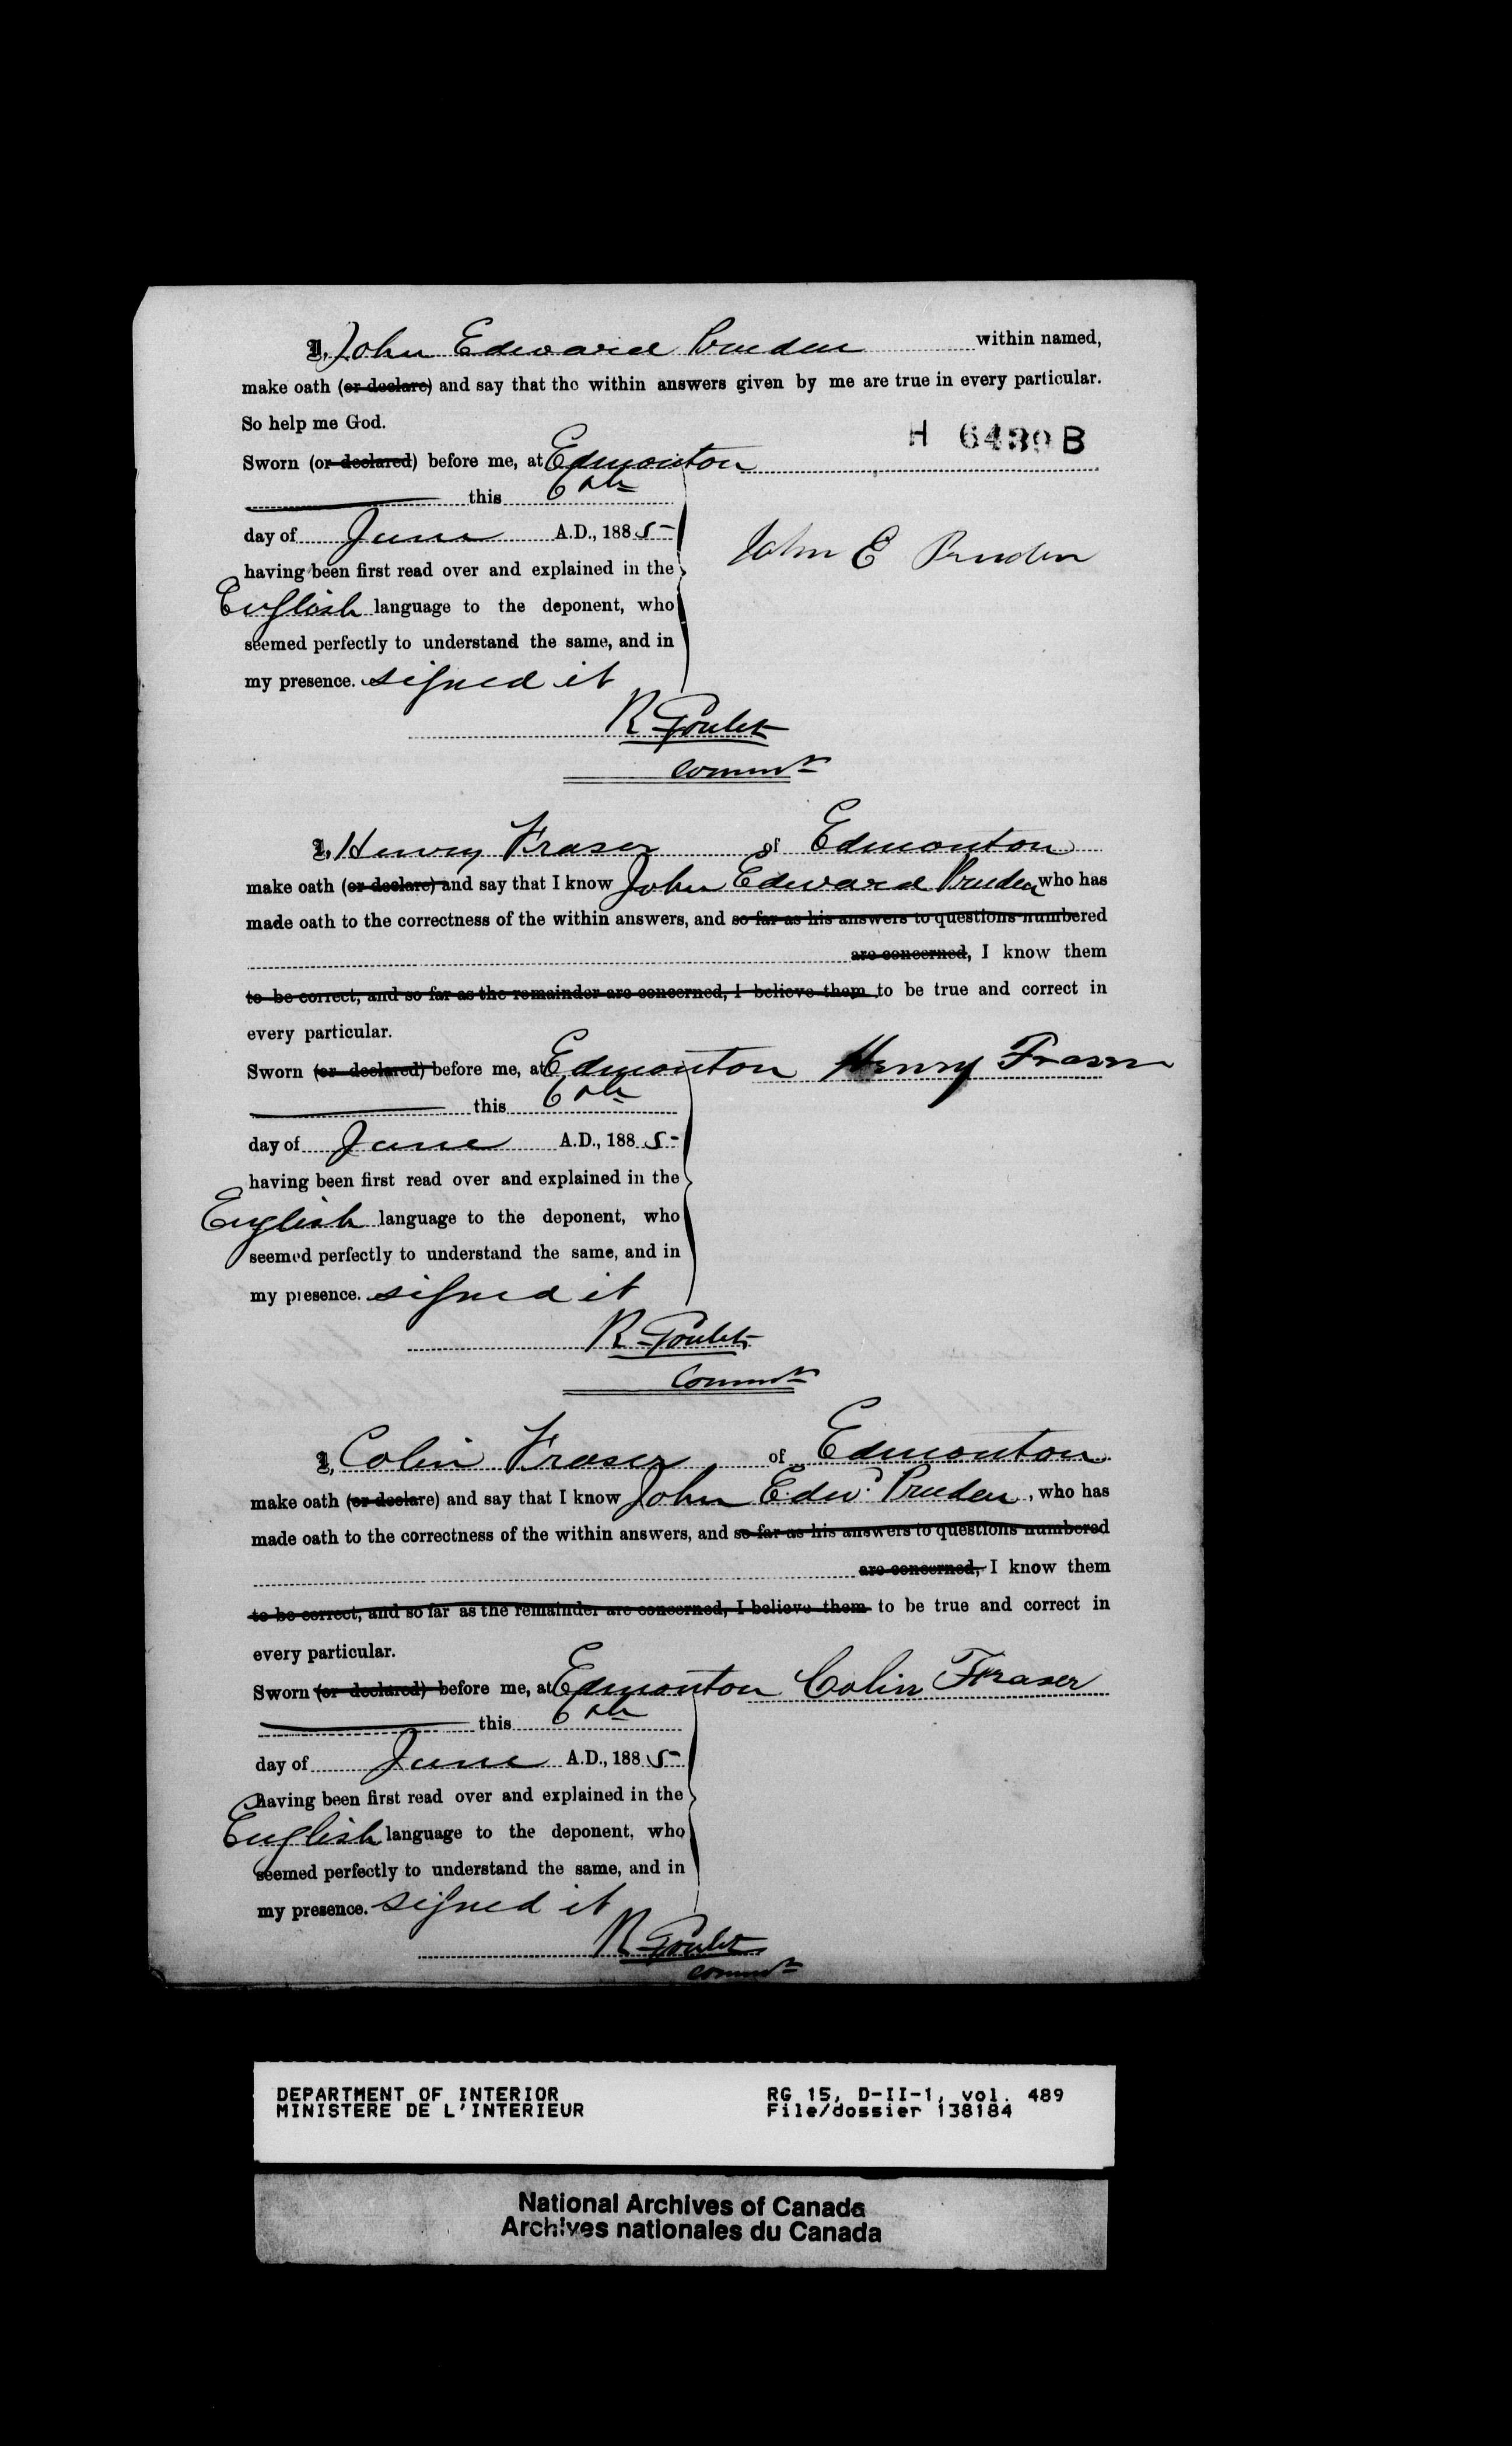 I, John Edward Pruden within named,
make oath (or declare) and say that the within answers given by me are true in every particular.
So help me God.
H 6439 B
Sworn (or declared) before me, at Edmonton
this 6th
day of June A.D., 1885
John E Pruden
having been first read over and explained in the
English language to the deponent, who
seemed perfectly to understand the same, and in
my presence. signed it
R Goulet
Commr
I, Henry Fraser of Edmonton
make oath (or declare) and say that I know John Edward Pruden who has
made oath to the correctness of the within answers, and so far as his answers to questions numbered
are concerned, I know them
to be correct, and so far as the remainder are concerned, I believe them to be true and correct in
every particular.
Sworn (or declared) before me, at Edmonton Henry Fraser
this 6th
day of June A.D., 1885
having been first read over and explained in the
English language to the deponent, who
seemed perfectly to understand the same, and in
my presence. signed it
R Goulet
Commr
I, Colin Fraser of Edmonton
make oath (or declare) and say that I know John Edwd. Pruden, who has
made oath to the correctness of the within answers, and so far as his answers to questions numbered
are concerned, I know them
to be correct, and so far as the remainder are concerned, I believe them to be true and correct in
every particular.
Sworn (or declared) before me, at Edmonton Colin Fraser
this 6th
day of June A.D., 1885
having been first read over and explained in the
English language to the deponent, who
seemed perfectly to understand the same, and in
my presence. signed it
R Goulet
Commr
DEPARTMENT OF INTERIOR RG 15, D-II-1, vol. 489
MINISTERE DE L'INTERIEUR File/dossier 138184
National Archives of Canada
Archives nationales du Canada